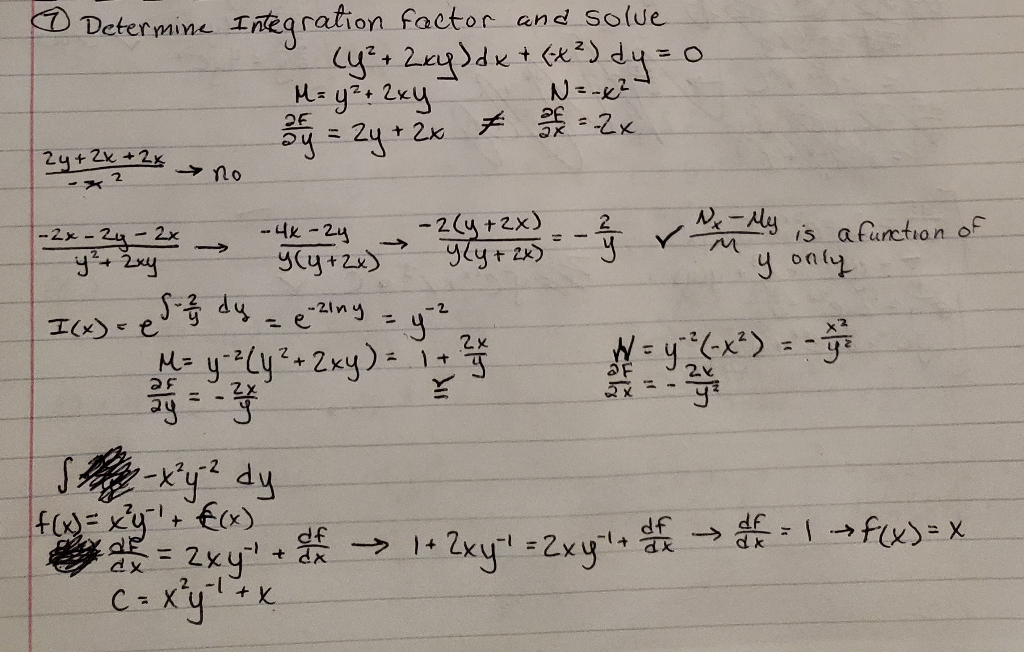 ⑦ Determine Integration factor and solve
(y² + 2xy)dx + (-x²) dy = 0
M = y² + 2xy N = -x²
∂F/∂y = 2y + 2x ≠ ∂F/∂x = -2x
(2y + 2x + 2x)/(-x²) → no
(-2x - 2y - 2x)/(y² + 2xy) → (-4x - 2y)/(y(y+2x)) → (-2(y+2x))/(y(y+2x)) = -2/y ✓ (Nx - My)/M is a function of
y only
I(x) = e^(∫-2/y dy) = e^(-2lny) = y⁻²
M = y⁻²(y² + 2xy) = 1 + 2x/y N = y⁻²(-x²) = -x²/y²
∂F/∂y = -2x/y ∂F/∂x = -2x/y²
∫ -x²y⁻² dy
f(x) = x²y⁻¹ + f(x)
dF/dx = 2xy⁻¹ + df/dx → 1 + 2xy⁻¹ = 2xy⁻¹ + df/dx → df/dx = 1 → f(x) = x
C = x²y⁻¹ + x